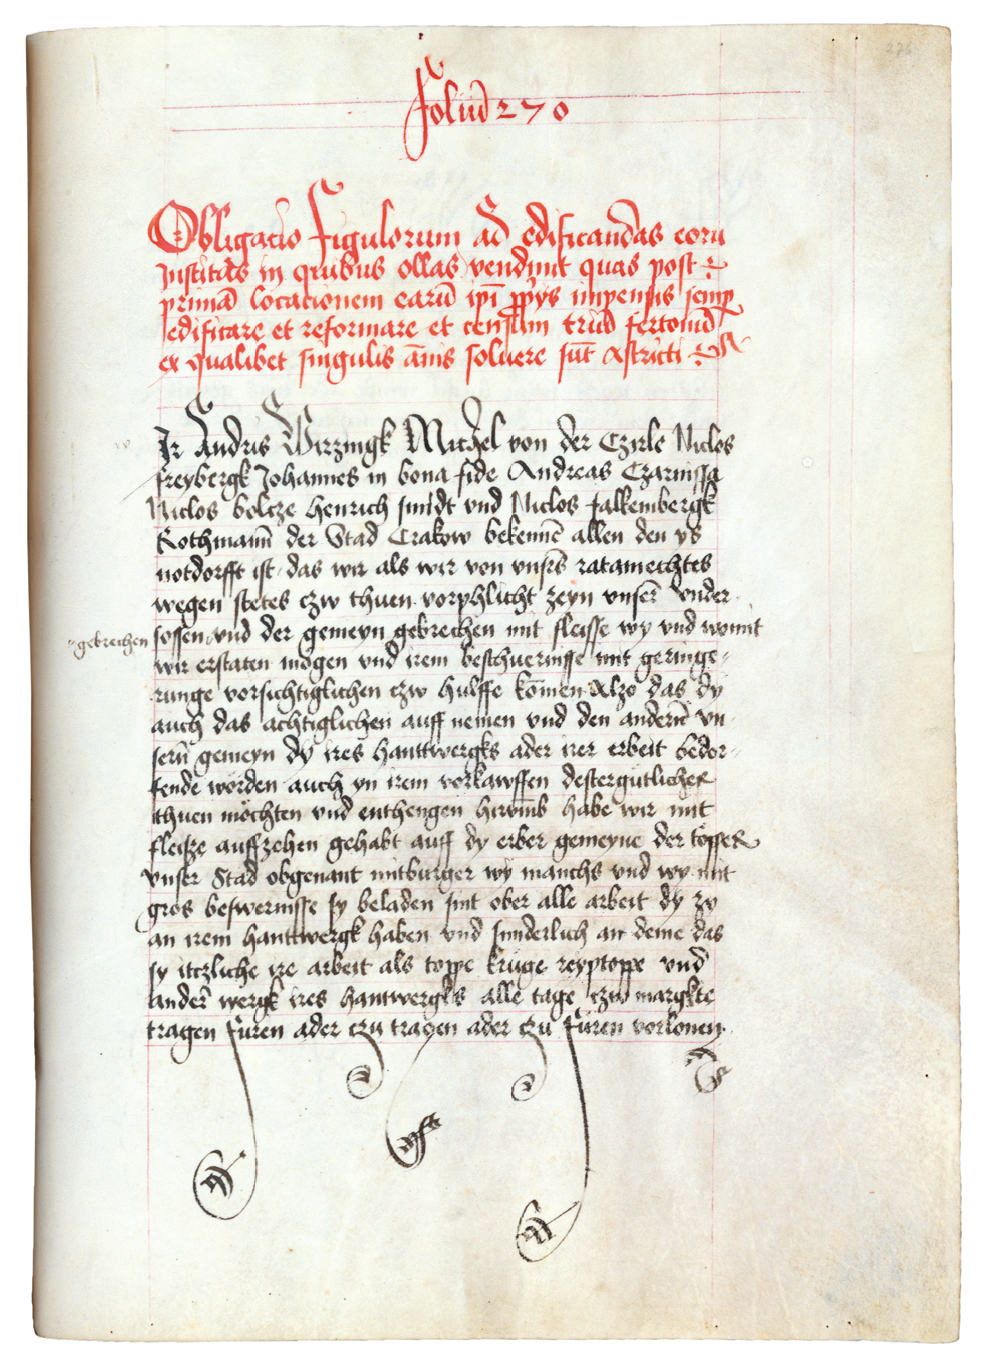 276
Foliū 270
Obligacio Figulorum ad edificandas eorū
Institas in quibus ollas vendunt quas post
primā locacionem earū ipī ꝓprys impensis semꝑ
edificare et reformare et censum triū fertonū
ex qualibet singulis annis soluere sūt astricti
Ir Andris Wirzingk Michel von der Czirle Niclos
freybergk Johannes in bona fide Andreas Czarnissa
Niclos boltze Henrich smidt vnd Niclos falkembergk
Rothmann der Stad Crakow bekennē allen den ys
notdorfft ist das wir als wir von vnsrs ratamechtes
wegen stetes czw thuen vorphlicht zeyn vnser vnder
gebrechen
sossen vnd der gemeyn gebrechen mit fleisse wy vnd womit
wir erstaten mogen vnd irem beschuernisse mit geringe
runge vorsichtiglichen czw hulffe komen Alzo das dy
auch das achtiglichen auff nemen vnd den andern vn
sern gemeyn dy ires hanttwergks ader irer erbeit bedor
fende worden auch yn irem vorkawffen destergutlicher
thuen mochten vnd enthengen hirumb habe wir mit
fleisze auffzehen gehabt auff dy erber gemeyne der topper
vnser Stad obgenant mitburger wy manchs vnd wy mit
gros beswernisse sy beladen sint ober alle arbeit dy zy
an irem hanttwergk haben vnd sunderlich an deme das
sy itczliche ire arbeit als toppe kruge reyptoppe vnd
ander wergk ires hantwergks alle tage czw margkte
tragen furen ader czu tragen ader czu furen vorlonen